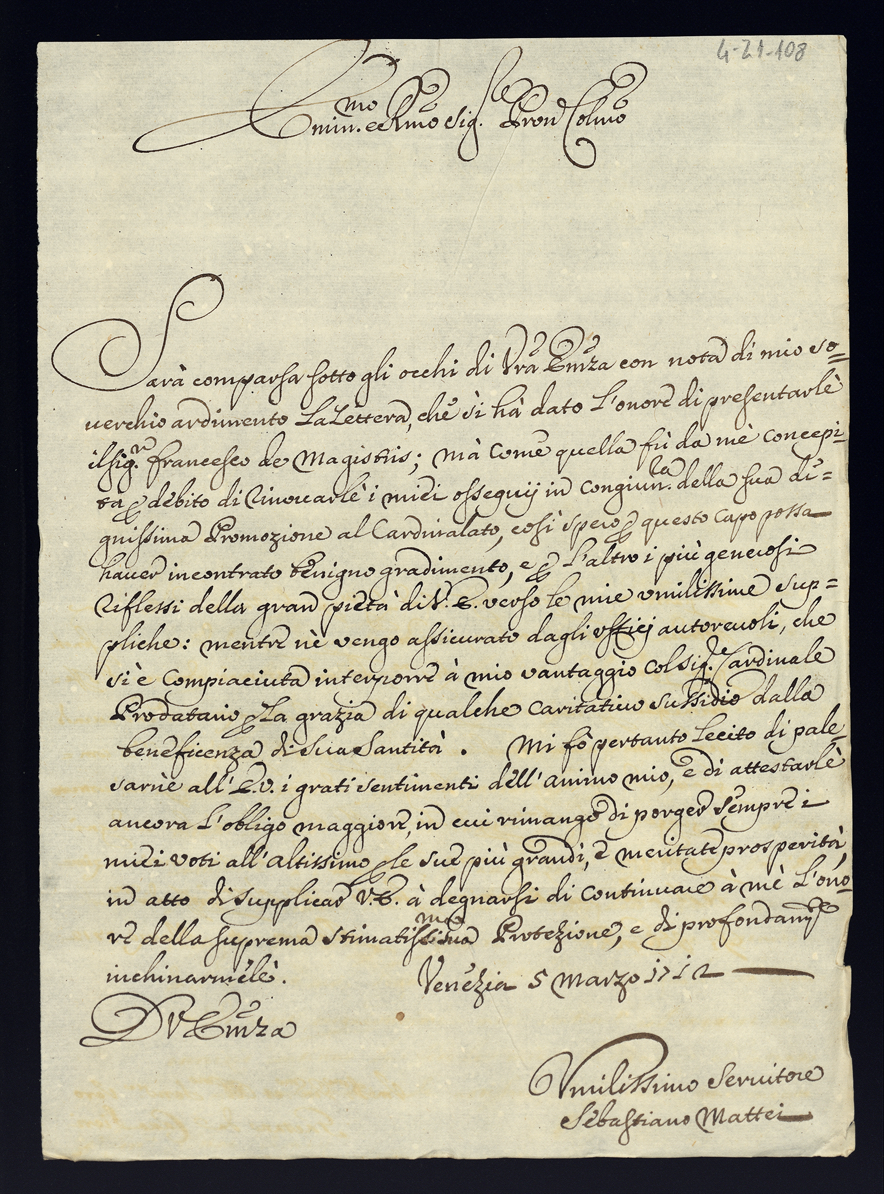 4-21-108
Emin.mo e Rmo Sig.re Pron Colmo
Sarà comparsa sotto gli occhi di Vra Emza con nota di mio so=
uerchio ardimento La Lettera, che si hà dato L'onore di presentarle
il sig.r francesco de Magistris; mà come quella fù da mè concepi-
ta per debito di rinouarle i miei ossequij in congiun.ra della sua di=
gnissima Promozione al Cardinalato, così spero per questo capo possa
hauer incontrato benigno gradimento, e per L'altro i più generosi
riflessi della gran pietà di V. E. verso le mie vmilissime sup=
pliche: mentre nè vengo assicurato dagli vfficj autoreuoli, che
si è Compiaciuta interporre à mio vantaggio col sig.re Cardinale
Prodatario per La grazia di qualche Caritatiuo sussidio dalla
beneficenza di Sua Santità. Mi fò pertanto Lecito di pale-
sarne all'E.V. i grati sentimenti dell'animo mio, e di attestarle
ancora L'obligo maggiore, in cui rimango di porger sempre i
miei voti all'Altissimo per le sue più grandi, e meritate prosperità,
in atto di supplicar V.E. à degnarsi di Continuare à mè L'ono-
re della suprema stimatissima Protezione, e di profondam.te
inchinarmele.
Venezia 5 Marzo 1712
D V Emza
Vmilissimo Seruitore
Sebastiano Mattei